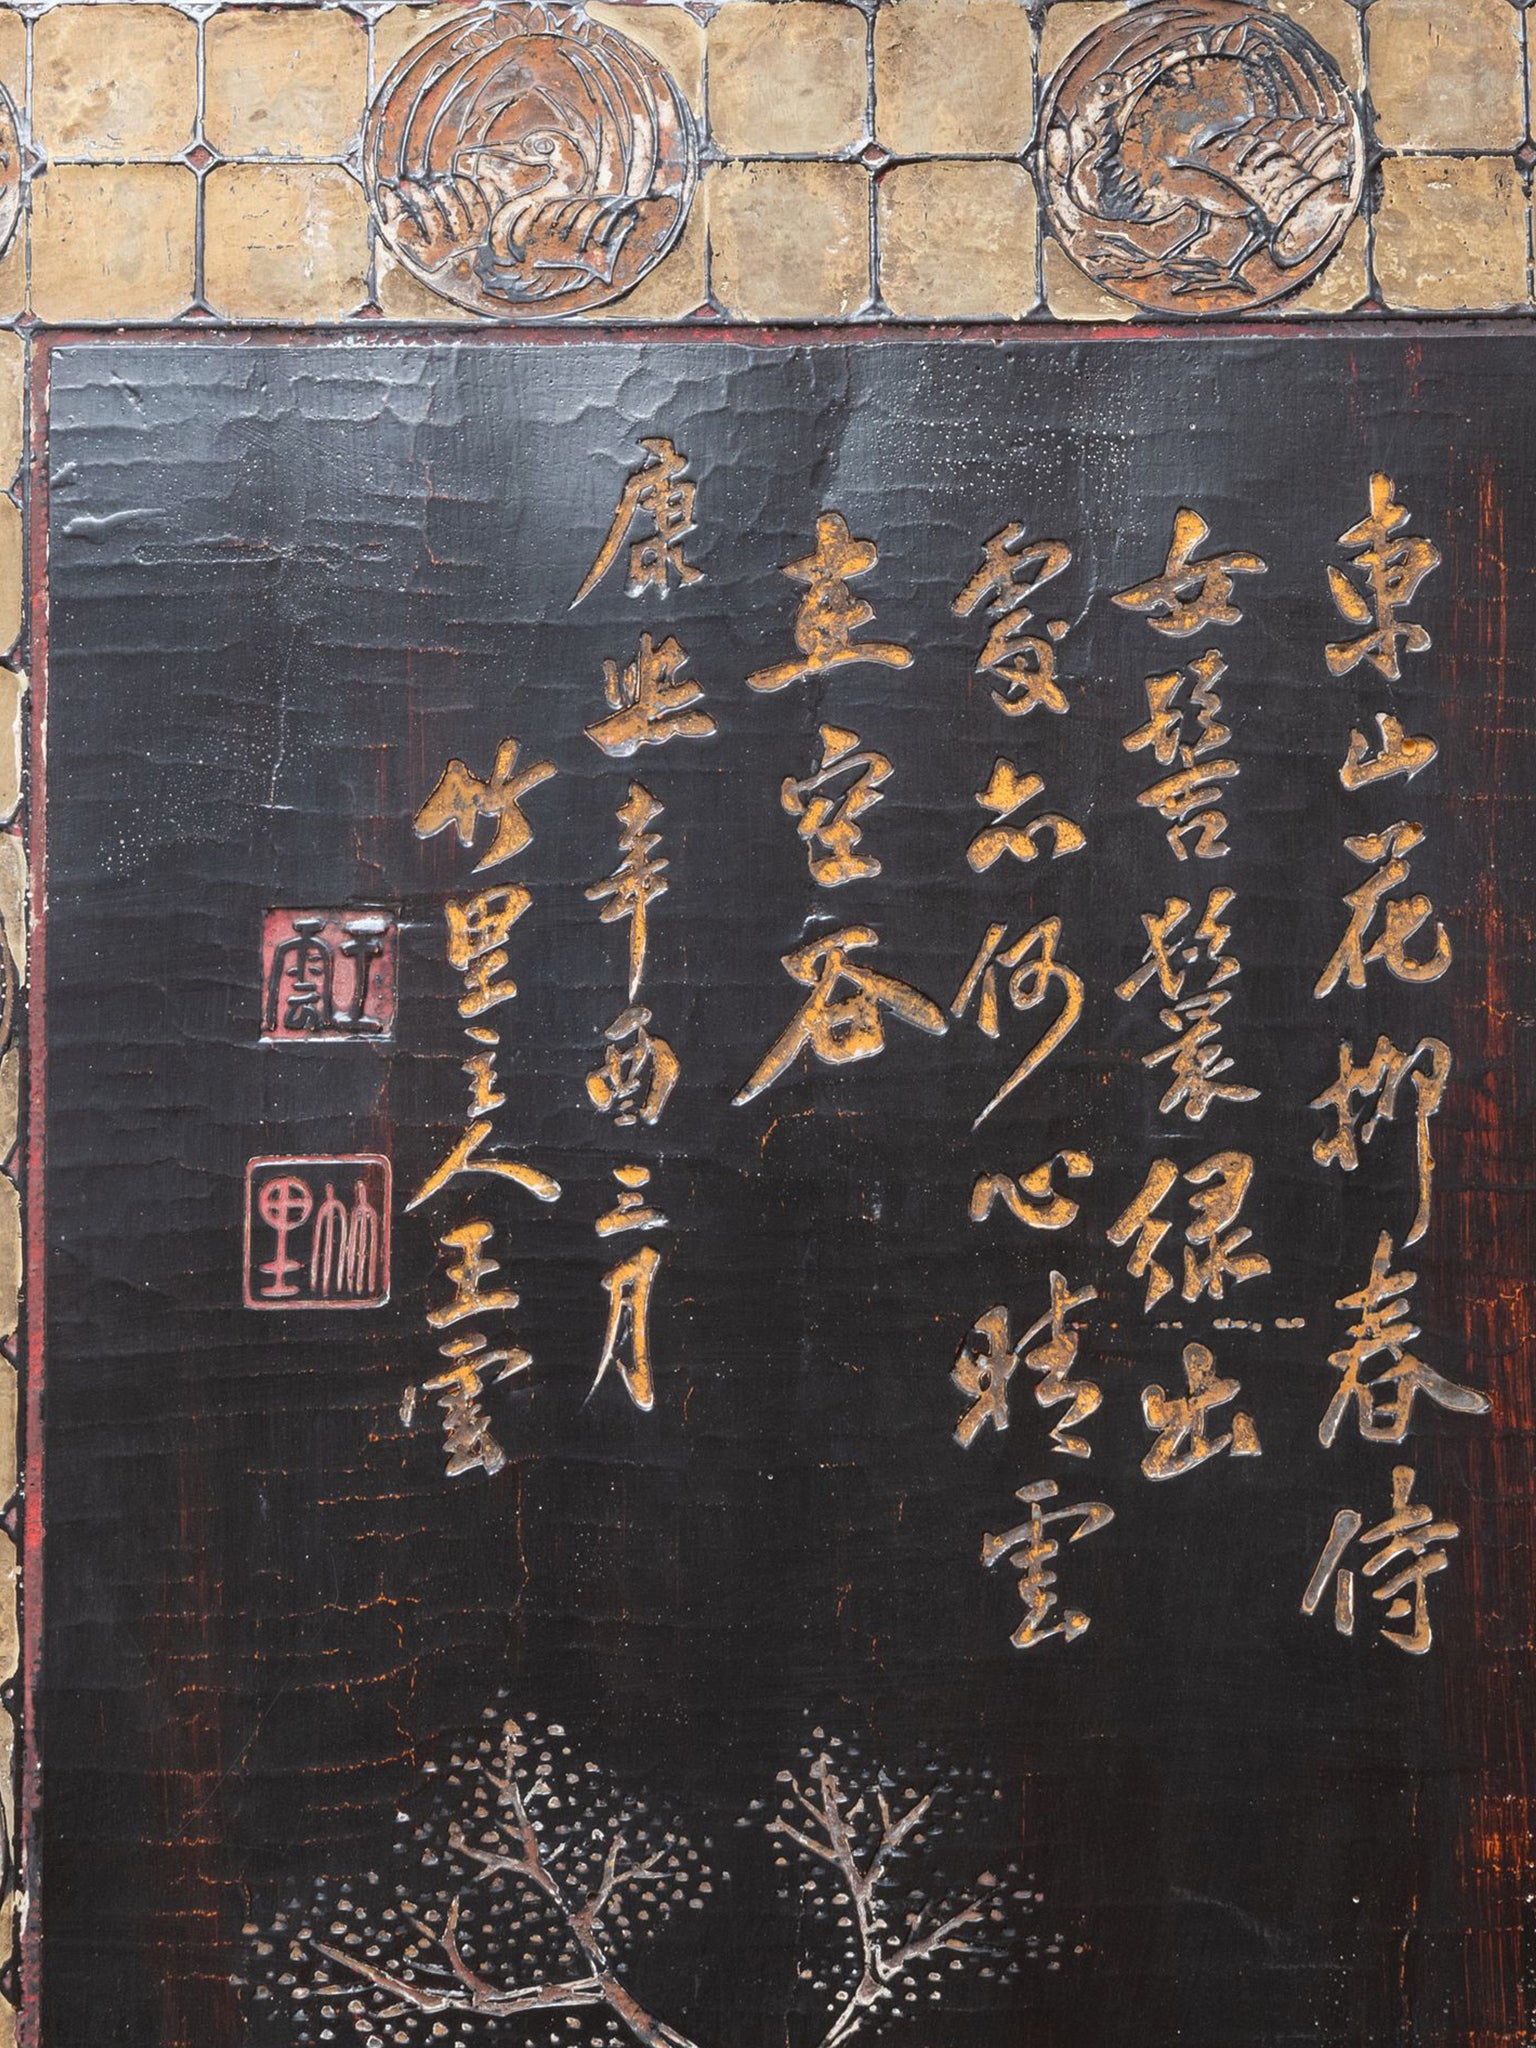 東山花柳春侍
女髻鬟緑出
處亦何心晴雲
在空谷
康熙辛酉三月
竹里主人王雲
王雲
竹里